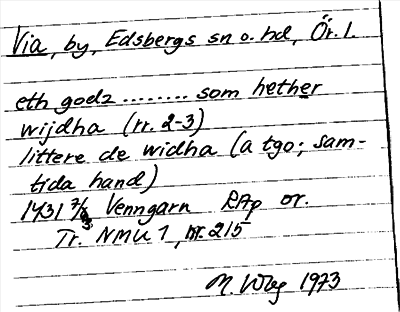 Via, by, Edsbergs sn o. hd, Ör. l.
eth godz ........ som hether
wijdha (rr. 2-3)
littere de widha (a tgo; sam-
tida hand)
1431 7/3 Venngarn RAp or.
Tr. NMU 1, nr. 215
1973